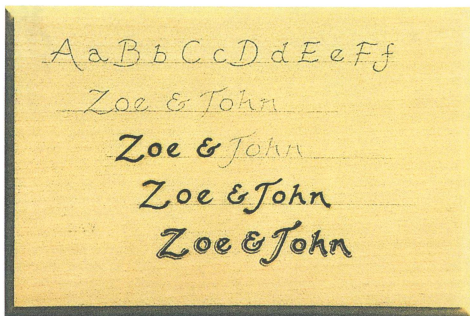 Aa Bb Cc Dd Ee Ff
Zoe & John
Zoe & John
Zoe & John
Zoe & John